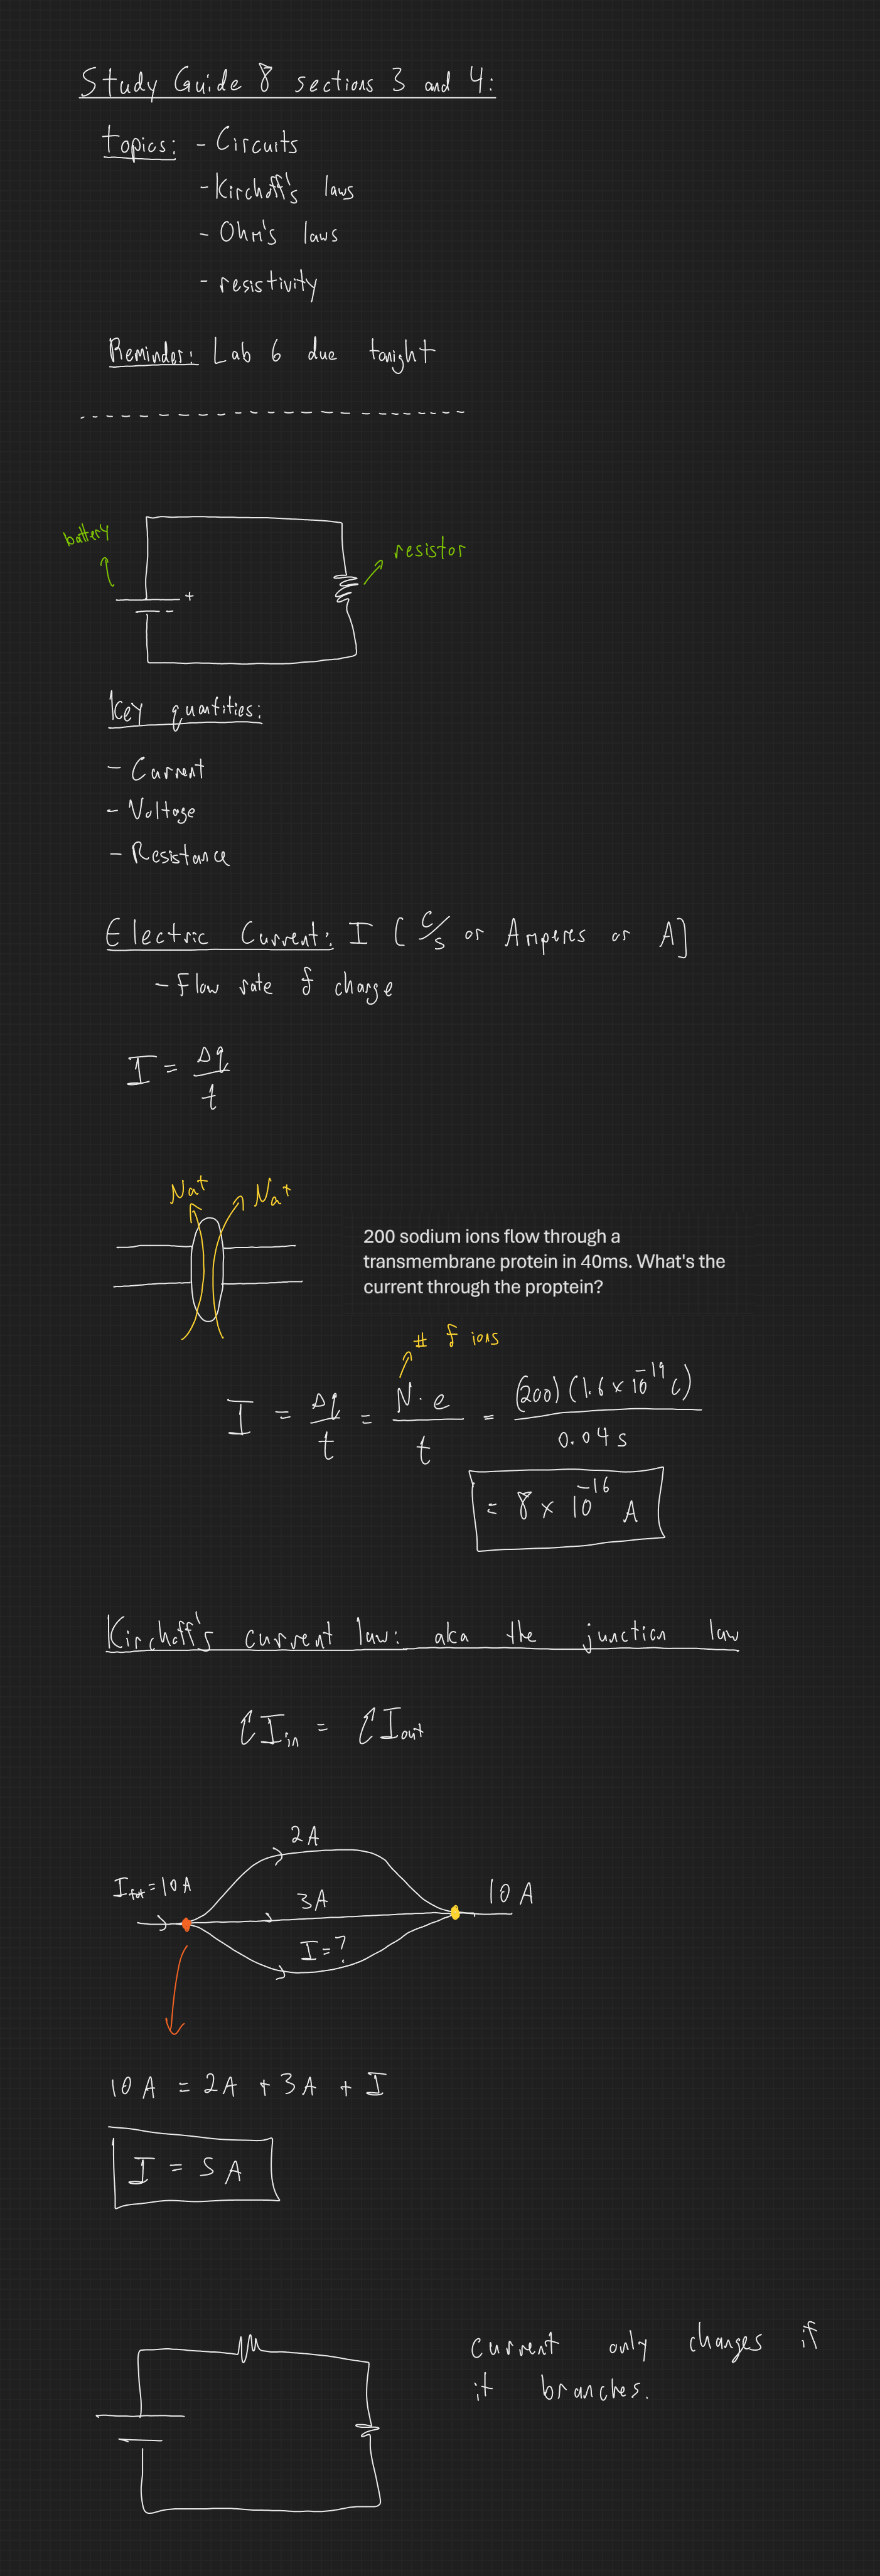 Study Guide 8 sections 3 and 4:
topics: - Circuits
- Kirchoff's laws
- Ohm's laws
- resistivity
Reminder: Lab 6 due tonight
battery
resistor
+
-
Key quantities:
- Current
- Voltage
- Resistance
Electric Current: I [C/s or Amperes or A]
- Flow rate of charge
I = Δq/t
Na+ Na+
200 sodium ions flow through a
transmembrane protein in 40ms. What's the
current through the proptein?
# of ions
I = Δq/t = N·e/t = (200)(1.6 × 10^-19 C)/0.04 s
= 8 × 10^-16 A
Kirchoff's current law: aka the junction law
ΣI_in = ΣI_out
2A
I_tot = 10 A
3A
10 A
I = ?
10 A = 2A + 3A + I
I = 5 A
current only changes if
it branches.